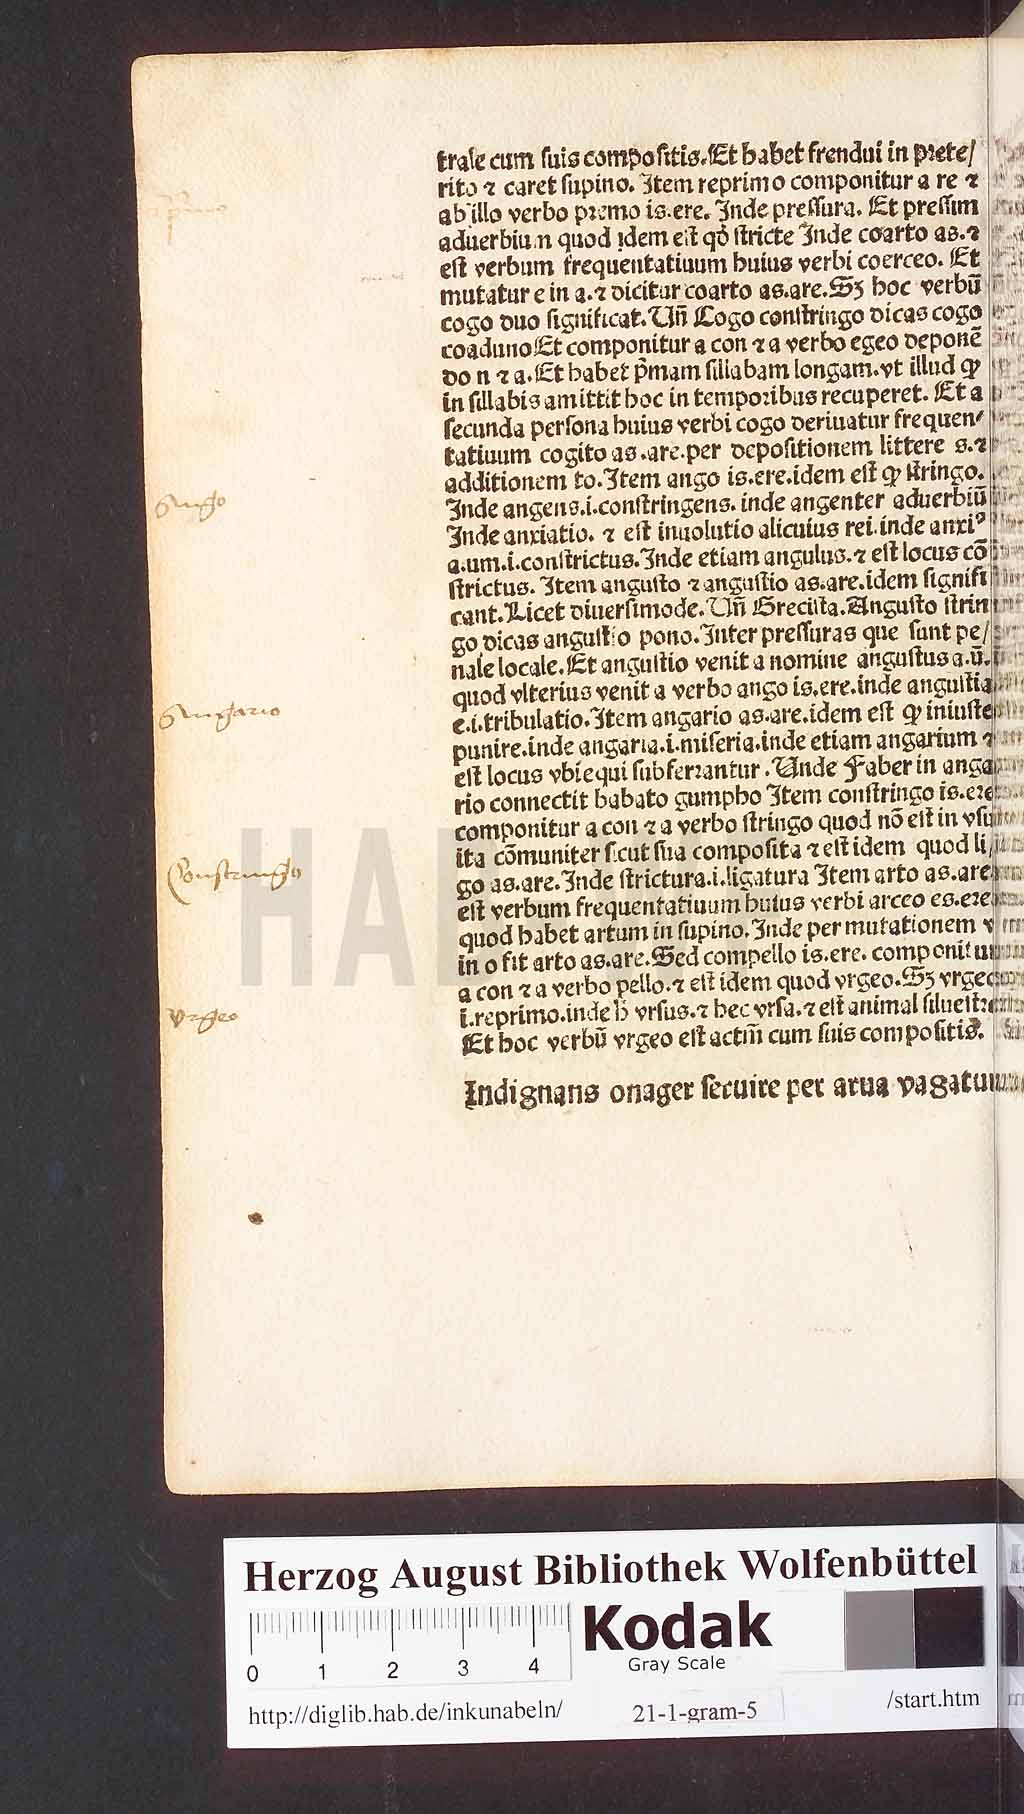 trale cum suis compositis. Et habet frendui in prete/
rito ⁊ caret supino. Item reprimo componitur a re ⁊
ab illo verbo premo is.ere. Inde pressura. Et pressim
aduerbium quod idem est qđ stricte Inde coarto as.⁊
est verbum frequentatiuum huius verbi coerceo. Et
mutatur e in a.⁊ dicitur coarto as.are. Sꝫ hoc verbū
cogo duo significat. Uñ Cogo constringo dicas cogo
coaduno Et componitur a con ⁊ a verbo egeo deponē
do n ⁊ a. Et habet p̄mam sillabam longam. vt illud ꝙ
in sillabis amittit hoc in temporibus recuperet. Et a
secunda persona huius verbi cogo deriuatur frequen/
tatiuum cogito as.are. per depositionem littere s.⁊
additionem to. Item ango is.ere. idem est ꝙ stringo.
Inde angens.i.constringens. inde angenter aduerbiū
Inde anxiatio. ⁊ est inuolutio alicuius rei. inde anxiꝰ
a.um.i.constrictus. Inde etiam angulus. ⁊ est locus cō
strictus. Item angusto ⁊ angustio as.are. idem signifi
cant. Licet diuersimode. Uñ Grecista. Angusto strin
go dicas angustio pono. Inter pressuras que sunt pe/
nale locale. Et angustio venit a nomine angustus a.ū.
quod vlterius venit a verbo ango is.ere. inde angustia
e.i.tribulatio. Item angario as.are. idem est ꝙ iniuste
punire. inde angaria.i.miseria. inde etiam angarium ⁊
est locus vbi equi subferrantur. Unde Faber in anga
rio connectit babato gumpho Item constringo is.ere
componitur a con ⁊ a verbo stringo quod nō est in vsu
ita cōmuniter sicut sua composita ⁊ est idem quod li/
go as.are. Inde strictura.i.ligatura Item arto as.are
est verbum frequentatiuum huius verbi arceo es.ere
quod habet artum in supino. Inde per mutationem v
in o fit arto as.are. Sed compello is.ere. componitur
a con ⁊ a verbo pello. ⁊ est idem quod vrgeo. Sꝫ vrgeo
i.reprimo. inde h̄ vrsus. ⁊ hec vrsa. ⁊ est animal siluestre
Et hoc verbū vrgeo est actiū cum suis compositis.
Indignans onager seruire per arua vagatur
Ango
Angario
Constringo
Vrgeo
HAB
Herzog August Bibliothek Wolfenbüttel
Kodak
Gray Scale
0 1 2 3 4
http://diglib.hab.de/inkunabeln/ 21-1-gram-5 /start.htm